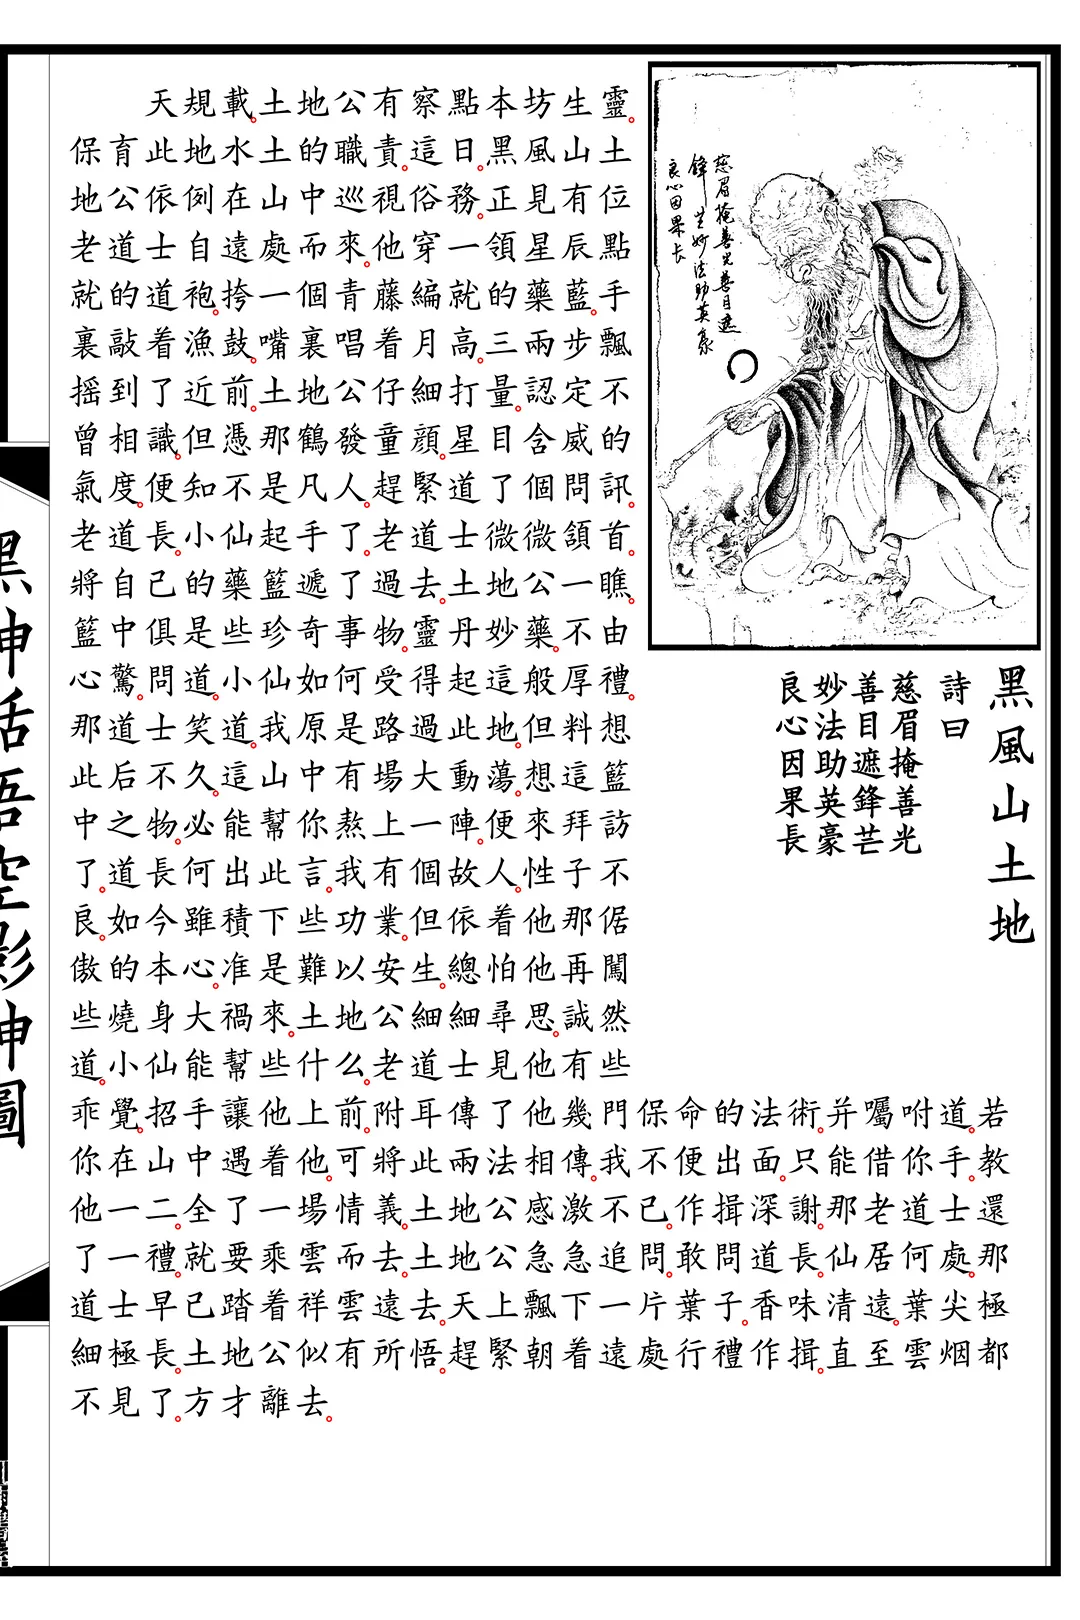 黑風山土地
詩曰
慈眉掩善光
善目遮鋒芒
妙法助英豪
良心因果長
慈眉掩善光善目遮
鋒芒妙法助英豪
良心因果長
天規載。土地公有察點本坊生靈。
保育此地水土的職責。這日。黑風山土
地公依例在山中巡視俗務。正見有位
老道士自遠處而來。他穿一領星辰點
就的道袍。挎一個青藤編就的藥藍。手
裏敲着漁鼓。嘴裏唱着月高。三兩步飄
摇到了近前。土地公仔細打量。認定不
曾相識。但憑那鶴發童顔。星目含威的
氣度。便知不是凡人。趕緊道了個問訊。
老道長。小仙起手了。老道士微微頷首。
將自己的藥籃遞了過去。土地公一瞧。
籃中俱是些珍奇事物。靈丹妙藥。不由
心驚。問道。小仙如何受得起這般厚禮。
那道士笑道。我原是路過此地。但料想
此后不久。這山中有場大動蕩。想這籃
中之物。必能幫你熬上一陣。便來拜訪
了。道長何出此言。我有個故人。性子不
良。如今雖積下些功業。但依着他那倨
傲的本心。准是難以安生。總怕他再闖
些燒身大禍來。土地公細細尋思。誠然
道。小仙能幫些什么。老道士見他有些
乖覺。招手讓他上前。附耳傳了他幾門保命的法術。并囑咐道。若
你在山中遇着他。可將此兩法相傳。我不便出面。只能借你手。教
他一二。全了一場情義。土地公感激不已。作揖深謝。那老道士還
了一禮。就要乘雲而去。土地公急急追問。敢問道長。仙居何處。那
道士早已踏着祥雲遠去。天上飄下一片葉子。香味清遠。葉尖極
細極長。土地公似有所悟。趕緊朝着遠處行禮作揖。直至雲烟都
不見了。方才離去。
黑神話悟空影神圖